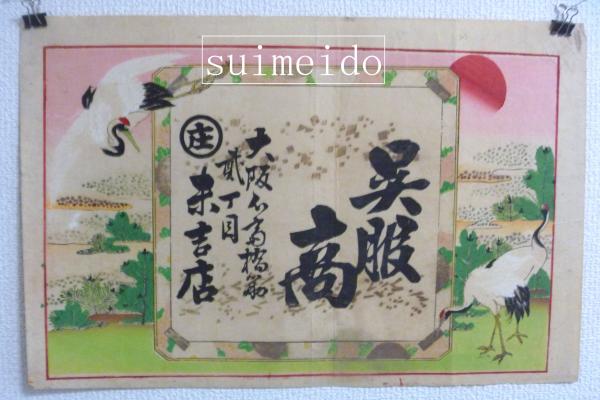 suimeido
呉服
商
大阪心斎橋筋
貳丁目
庄
末吉店